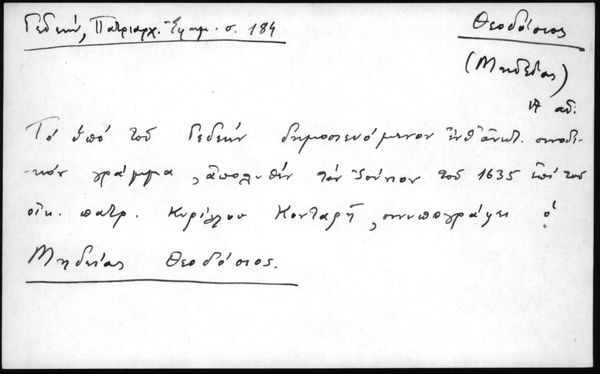 Γεδεών, Πατριαρχ. Ἐφημ. σ. 184
Θεοδόσιος
(Μηδείας)
ΙΖ αἰ.
Τό ὑπό τοῦ Γεδεών δημοσιευόμενον ἐνθ' ἀνωτ. συνοδι-
-κόν γράμμα, ἀπολυθέν τόν Ἰούνιον τοῦ 1635 ἐπί τοῦ
οἰκ. πατρ. Κυρίλλου Κονταρῆ, συνυπογράφει ὁ
Μηδείας Θεοδόσιος.